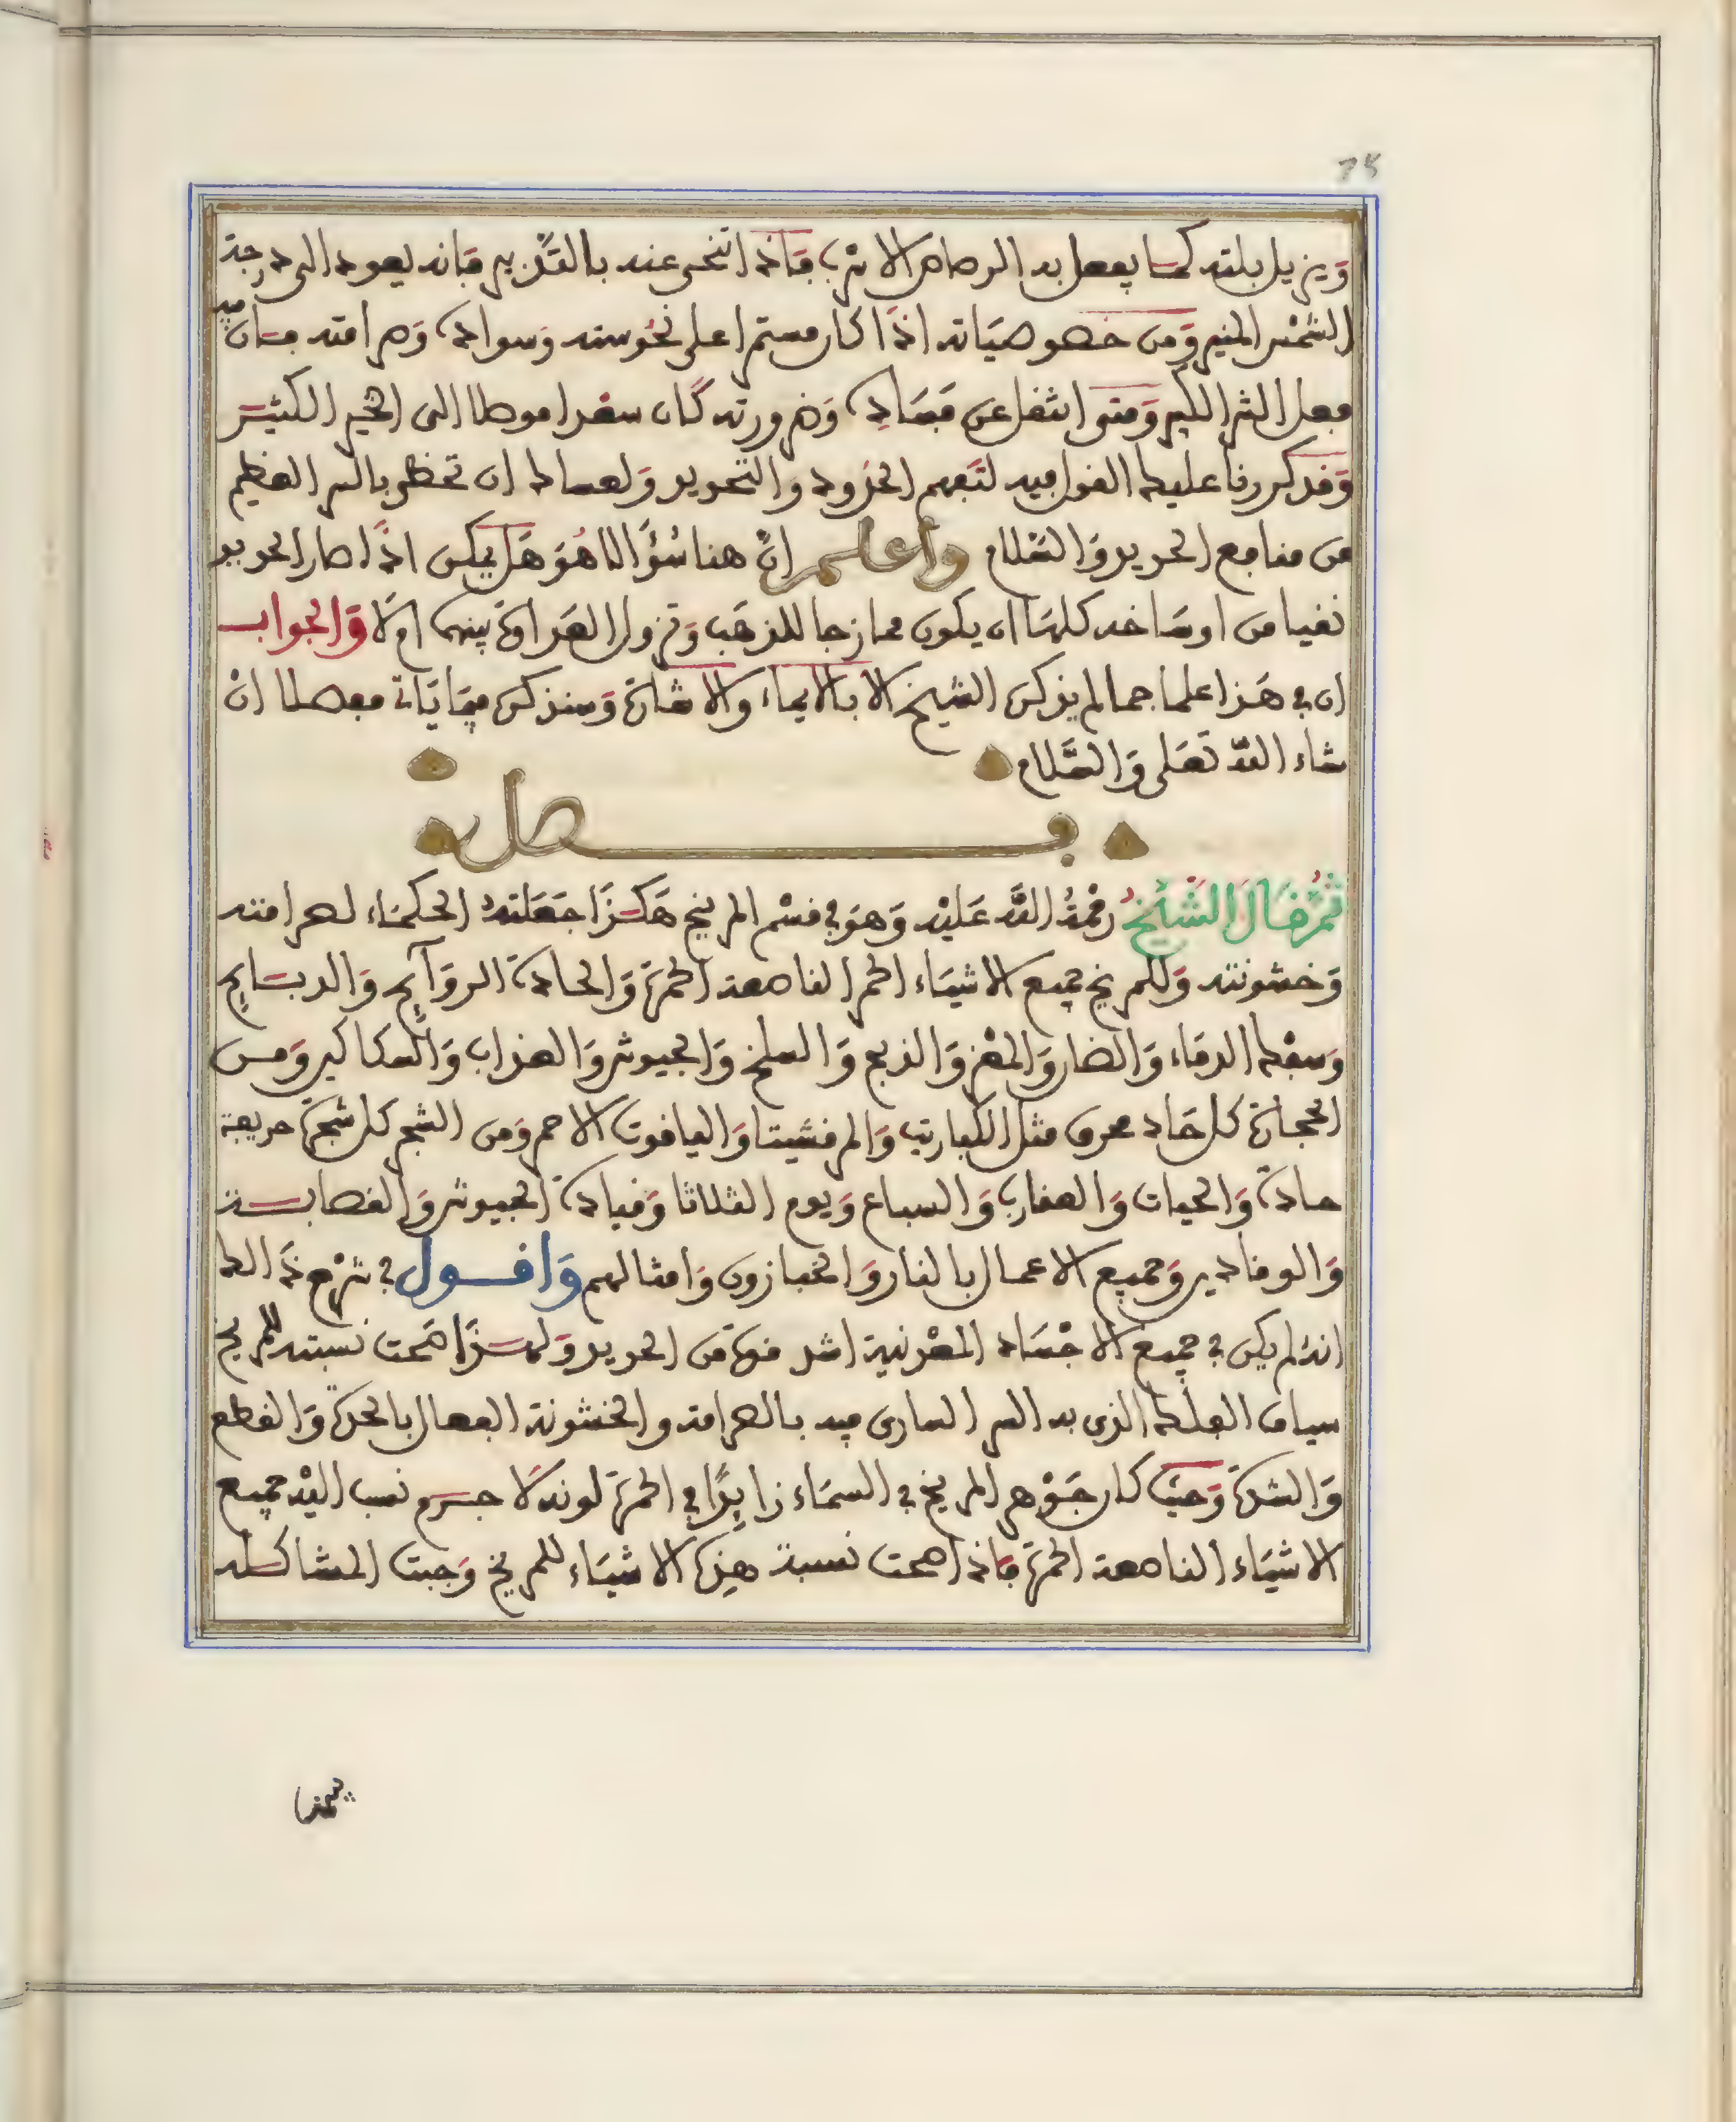 75
ويزيل بلته كما يفعل به الرصاص الاسرب فاذا انتحى عنه بالتدبير فانه يعود الى درجة
الشمس المنير ومن خصوصياته اذا كان مستمرا على نحوسته وسواده وصرامته فان فيه
فعل الشر الكبير ومتى انتقل عن فساده وضرورته كان سعدا موصلا الى الخير الكثير
وقد كررنا عليك القول فيه لتفهم الحدود والتحديد ولعساك ان تحظى بالسر العظيم
من منافع الحديد والسلام واعلم ان هنا سؤالا هو هل يمكن اذا صار الحديد
نقيا من اوساخه كلها ان يكون ممازجا للذهب وتزول العداوة بينهما ام لا والجواب
ان في هذا علما جما لم يذكره الشيخ الا بالايماء والاشارة وسنذكره فيما ياتي مفصلا ان
شاء الله تعلى والسلام
فصل
ثم قال الشيخ رحمة الله عليه وهو في قسم المريخ هكذا جعلته الحكماء لصرامته
وخشونته وللمريخ جميع الاشياء الحمر الناصعة الحمرة والحادة الروآيح والدبايح
وسفك الدماء والمضار والمغز والذبح والسلخ والجيوش والعذاب والسكاكين ومن
الحجارة كل حاد محرق مثل الكباريت والمرقشيتا والياقوت الاحمر ومن الشجر كل شجرة حريفة
حادة والحيات والعقارب والسباع ويوم الثلاثا وقيادة الجيوش والقصابين
والوقادين وجميع الاعمال بالنار والخبازون وامثالهم واقول في شرح ذالك
انه لم يكن في جميع الاجساد المعدنية اشد قوة من الحديد ولهذا صحت نسبته للمريخ
سياف الفلك الذي به السر الساري فيه بالصرامة والخشونة الفعال بالحدة والقطع
والشدة وحيث كان جوهر المريخ في السماء زايدا في الحمرة لونه لا جرم نسب اليه جميع
الاشياء الناصعة الحمرة فاذا صحت نسبة هذه الاشياء للمريخ وجبت المشاكلة